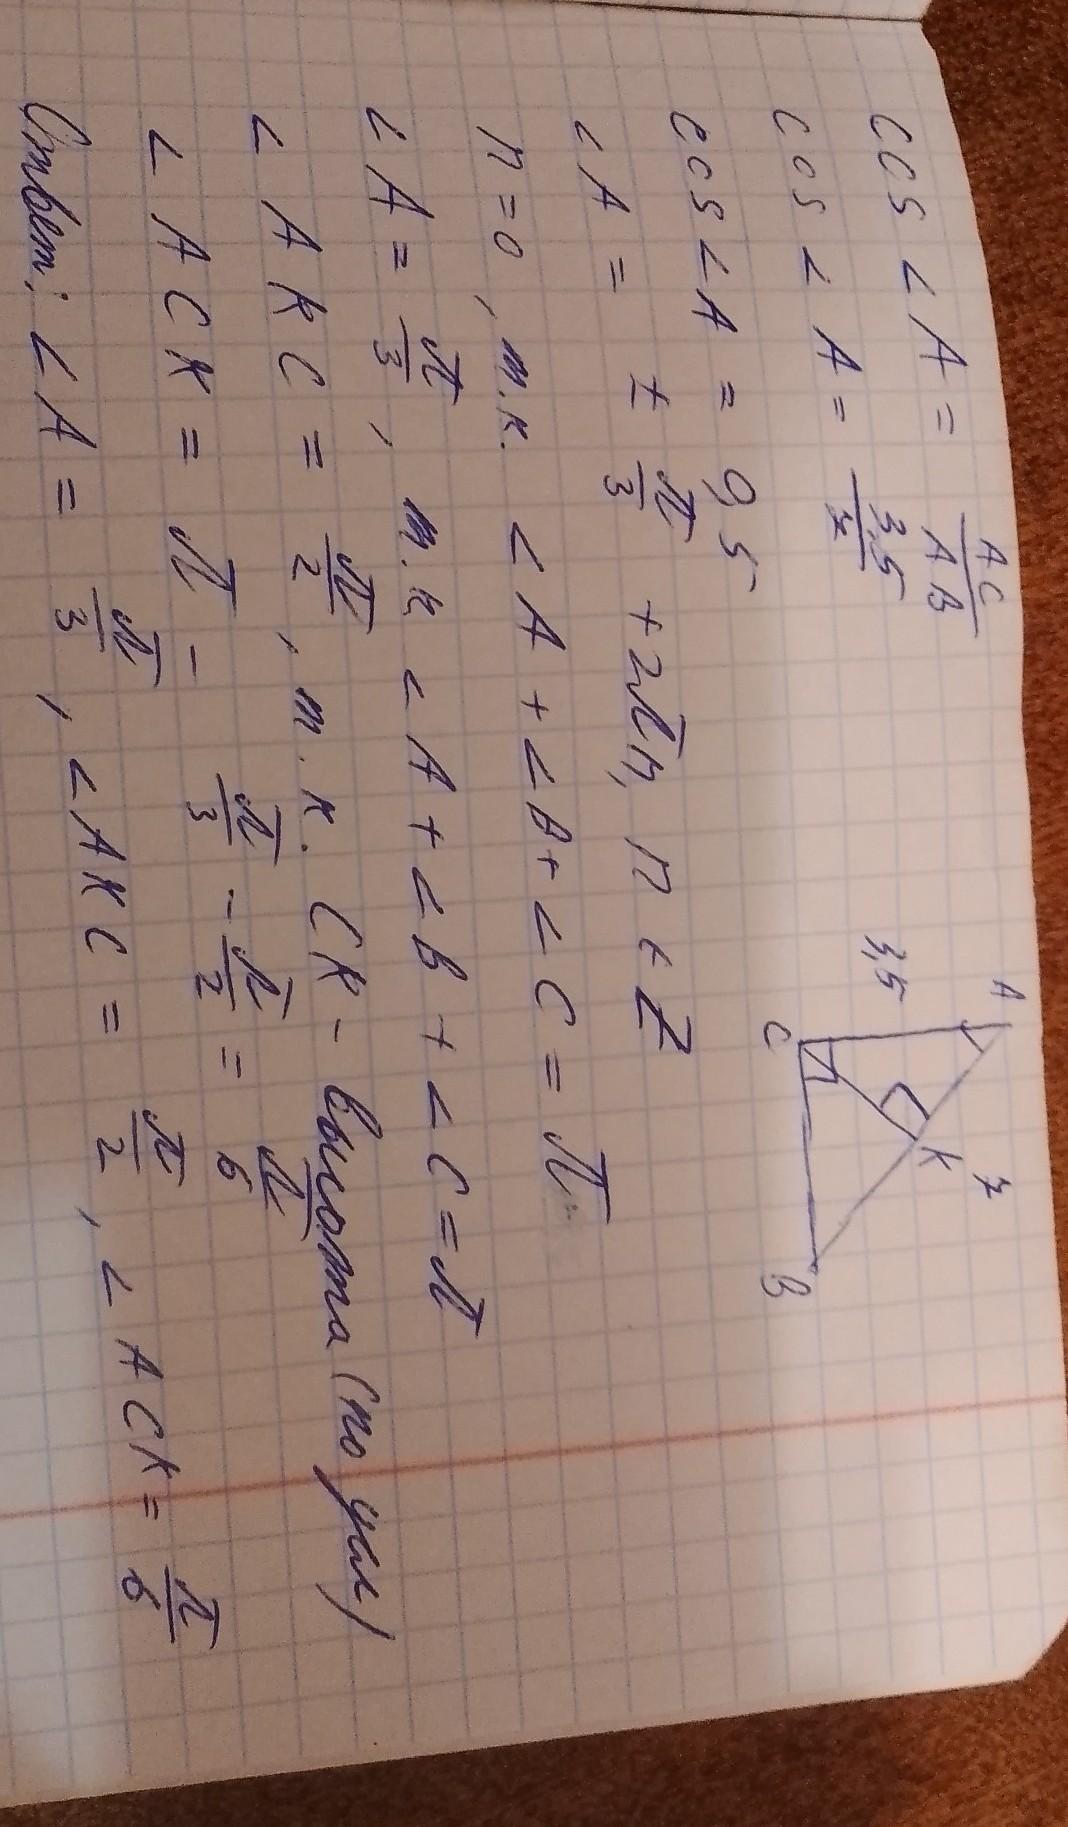 cos ∠A = AC/AB
cos ∠A = 3,5/7
cos ∠A = 0,5
∠A = ± π/3 + 2πn, n ∈ Z
n = 0, т.к. ∠A + ∠B + ∠C = π
∠A = π/3, т.к ∠A + ∠B + ∠C = π
∠AKC = π/2, т.к. CK - высота (по усл)
∠ACK = π - π/3 - π/2 = π/6
Ответ: ∠A = π/3, ∠AKC = π/2, ∠ACK = π/6
A
3,5
7
K
C
B